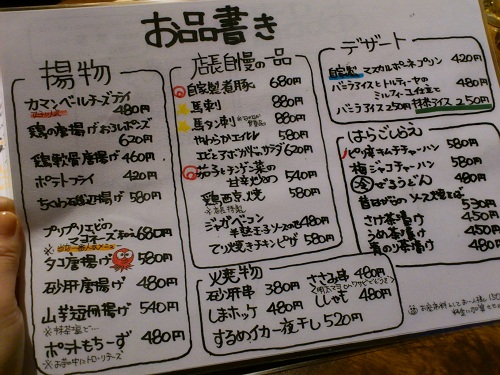 お品書き
揚物
カマンベールチーズフライ
480円
鶏の唐揚げおろしポンズ
620円
鶏軟骨唐揚げ 460円
ポテトフライ 420円
ちくわ石垣揚げ 580円
プリプリエビの
マヨネーズ 680円
タコ唐揚げ 580円
砂肝唐揚げ 480円
山芋短冊揚げ 540円
※抹茶塩で…
ポテトもちーず 480円
店長自慢の一品
自家製煮豚 680円
馬刺 880円
馬タン刺 880円
やわらかエイヒレ 580円
エビとアボカドのサラダ 620円
茄子とチンゲン菜の
甘辛炒め 540円
鶏西京焼 580円
ジャガベーコン
半熟玉子ソースのせ 480円
てり焼きチキンピザ 580円
火焼物
砂肝串 380円
しまホッケ 480円
するめイカ一夜干し 520円
ささみ串 480円
ししゃも 480円
デザート
自家製 マスカルポーネプリン 420円
バニラアイスとトルティーヤの
ミルフィーユ仕立て 480円
バニラアイス 250円 抹茶アイス 250円
はらごしらえ
ピリ辛キムチチャーハン 580円
梅ジャコチャーハン 580円
冷 ざるうどん 480円
昔ながらのソース焼そば
530円
さけ茶漬け 450円
うめ茶漬け 450円
青のり茶漬け 480円